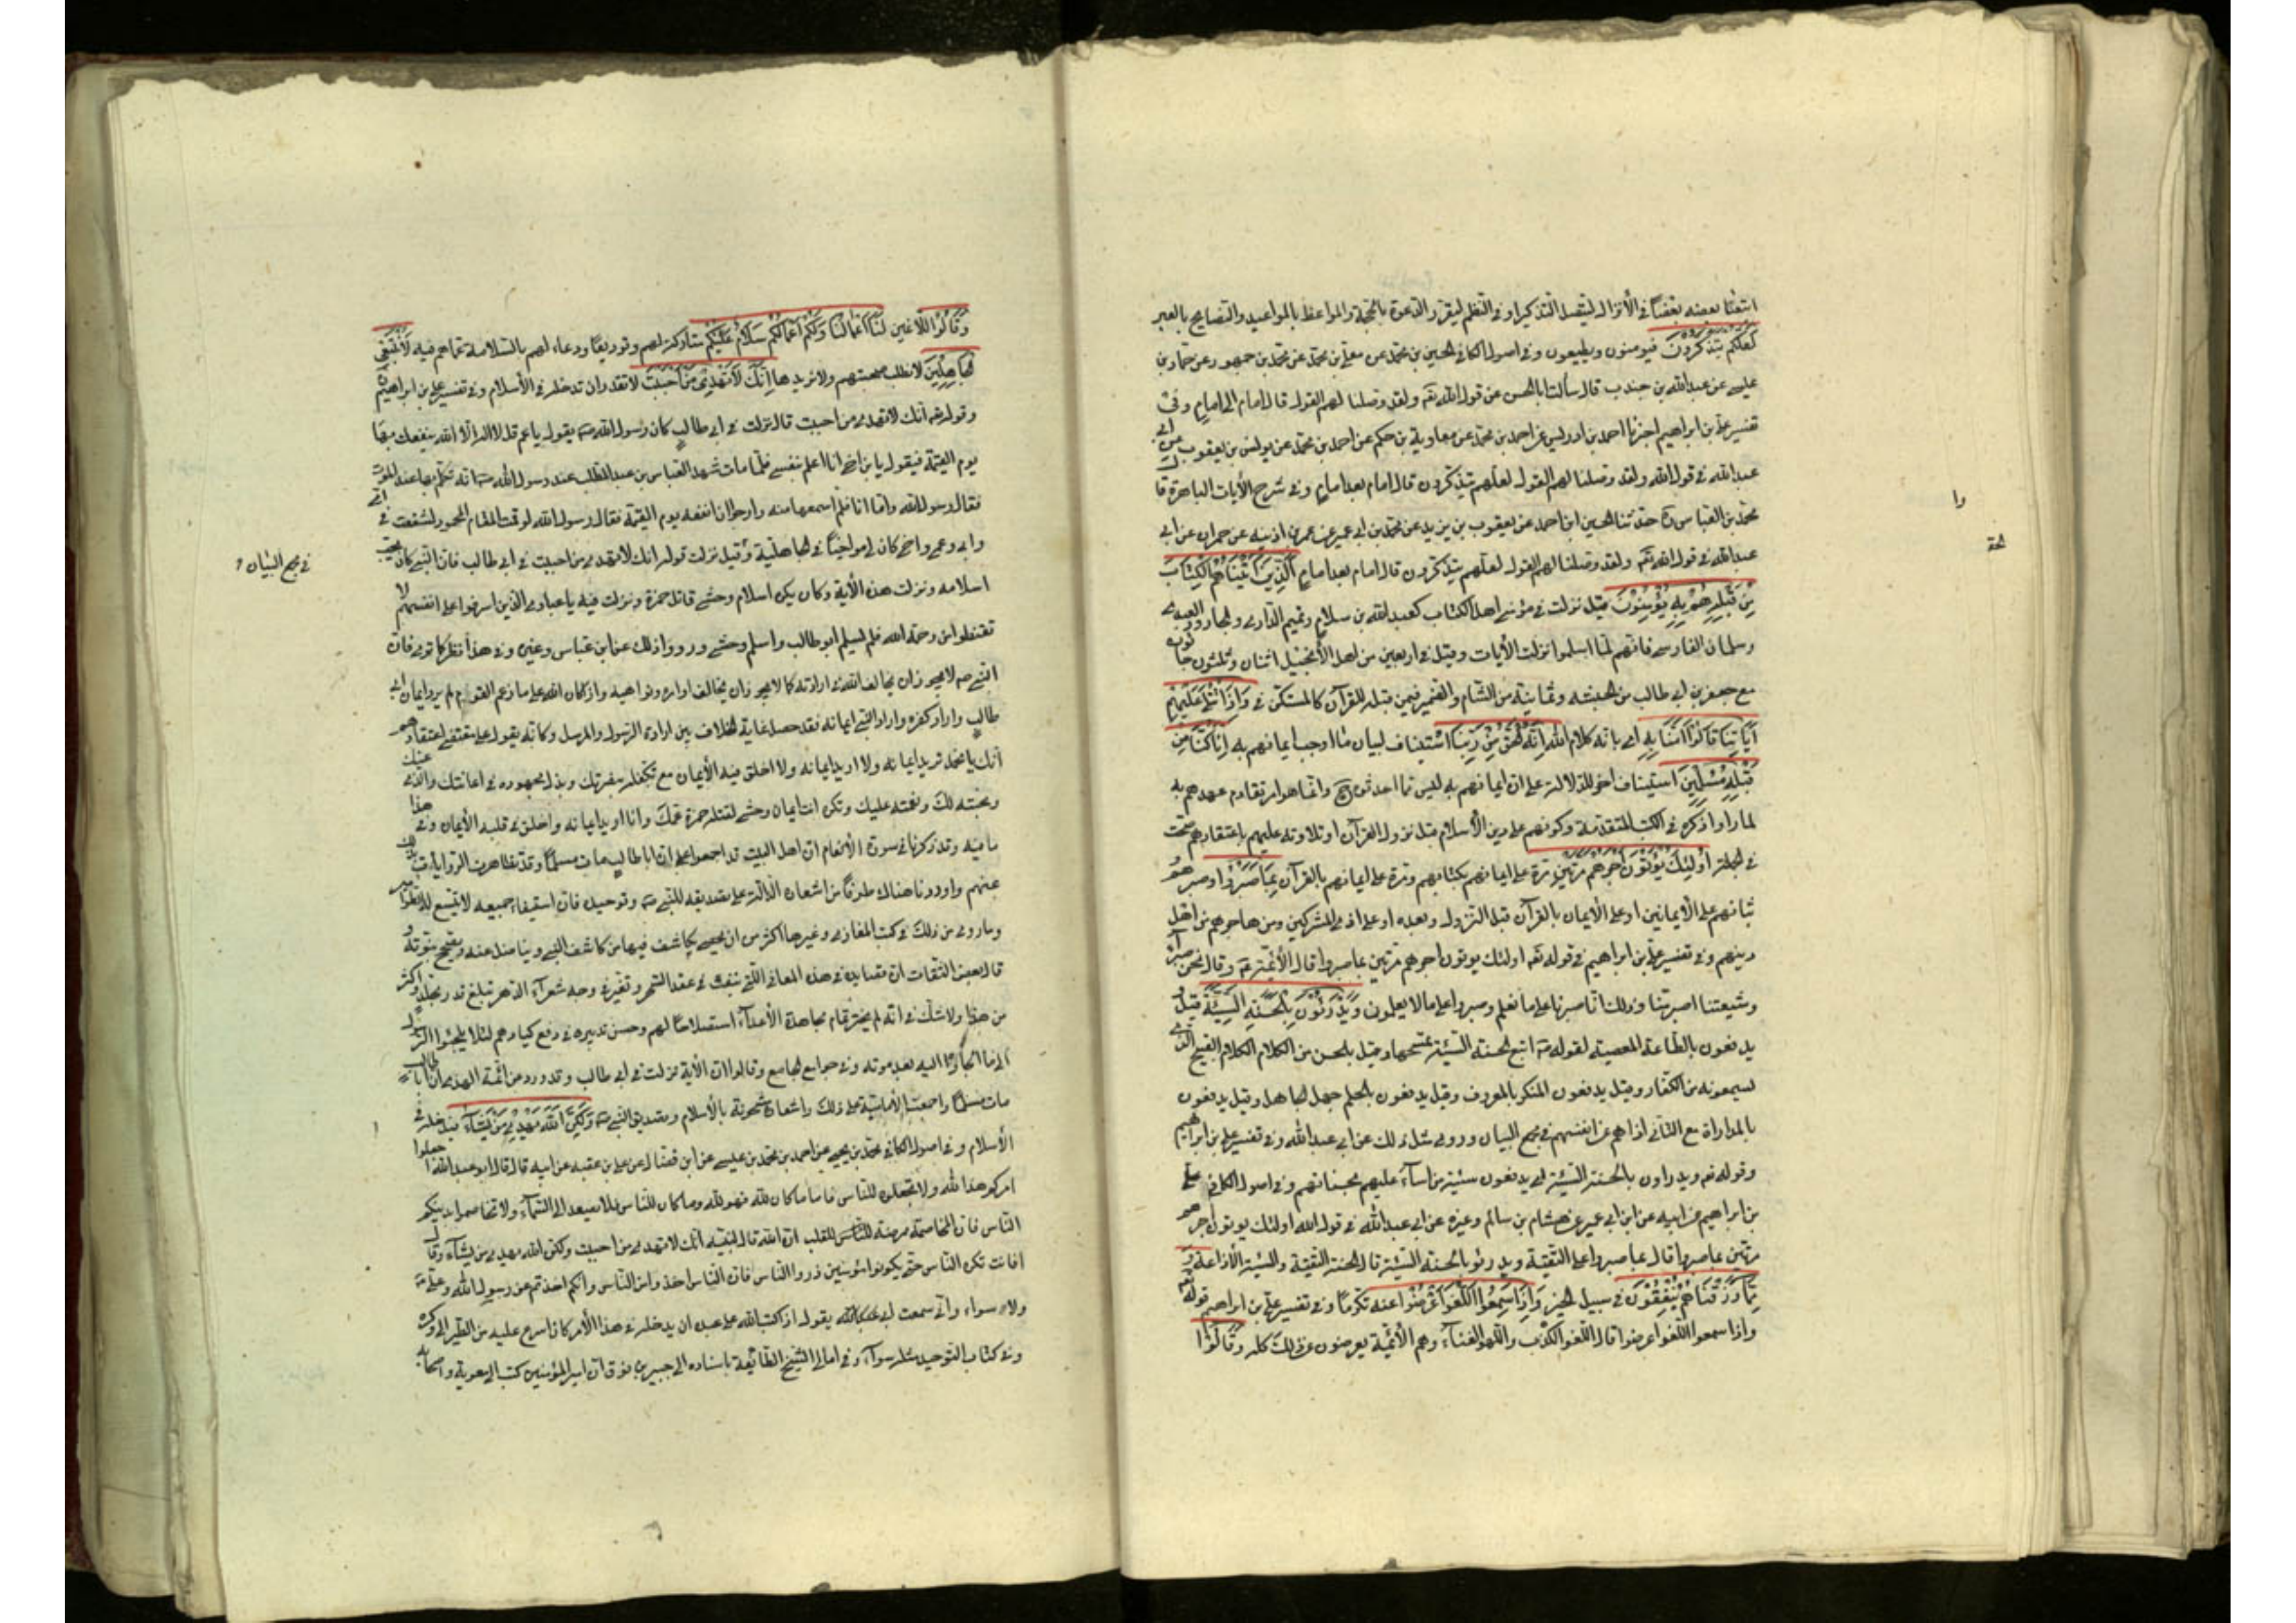 اتبعنا بعضه بعضا في الأنزال ليتصل التذكير او في النظم ليقرر الدعوة بالحجة والمواعظ بالمواعيد والنصايح بالعبر
لعلهم يتذكرون فيؤمنون ويطيعون وفي اصول الكافي الحسين بن محمد عن معلى بن محمد عن محمد بن جمهور عن حماد بن
عليسى عن عبدالله بن جندب قال سألت ابا الحسن عن قول الله تعه ولقد وصلنا لهم القول قال امام الى امام وفي
تفسير علي بن ابراهيم اخبرنا احمد بن ادريس عن احمد بن محمد عن معاوية بن حكم عن احمد بن محمد عن يونس بن يعقوب عن ابي
عبدالله في قول الله ولقد وصلنا لهم القول لعلهم يتذكرون قال امام بعد امام وفي شرح الأيات الباهرة قال
محمد بن العباس ره حدثنا الحسين ابن احمد عن يعقوب بن يزيد عن محمد بن ابي عمير عن عمر بن اذينه عن حمران عن ابي
عبدالله في قول الله تعه ولقد وصلنا لهم القول لعلهم يتذكرون قال امام بعد امام الذين آتيناهم الكتاب
من قبله هم به يؤمنون قيل نزلت في مؤمني اهل الكتاب كعبد الله بن سلام وتميم الداري والجارود العبدي
وسلمان الفارسي فانهم لما اسلموا نزلت الأيات وقيل في اربعين من اهل الأنجيل اثنان وثلثون جاؤا
مع جعفر بن ابي طالب من الحبشه وثمانية من الشام والضمير فيمن قبله للقرآن كالمستكن في واذا يتلى عليهم
آياتنا قالوا آمنا به اي بانه كلام الله انه الحق من ربنا استيناف لبيان ما اوجب ايمانهم به انا كنا من
قبله مسلمين استيناف اخر للدلالة على ان ايمانهم به ليس مما احدثوه ح وانما هو امر تقادم عهدهم به
لما راوا ذكره في الكتب المتقدمة وكونهم على دين الأسلام قبل نزول القرآن او تلاوته عليهم باعتقادهم صحته
في الجملة اولئك يؤتون اجرهم مرتين مرة على ايمانهم بكتابهم ومرة على ايمانهم بالقرآن بما صبروا او صبرهم و
ثباتهم على الأيمانين او على الأيمان بالقرآن قبل النزول وبعده او على اذى المشركين ومن هاجرهم من اهل
دينهم وفي تفسير علي بن ابراهيم في قوله تعه اولئك يوتون اجرهم مرتين بما صبروا قال الأئمة عه وقال نحن صبر
وشيعتنا اصبر منا وذلك انا صبرنا على ما نعلم وصبروا على مالا يعلمون ويدرؤن بالحسنة السيئة قيل
يدفعون بالطاعة المعصية لقوله صه اتبع الحسنة السيئة تمحها وقيل بالحسن من الكلام الكلام القبيح الذي
يسمعونه من الكفار وقيل يدفعون المنكر بالمعروف وقيل يدفعون بالحلم جهل الجاهل وقيل يدفعون
بالمداراة مع الناس اذاهم عن انفسهم في مجمع البيان وروى مثل ذلك عن ابي عبدالله وفي تفسير علي بن ابراهيم
وقوله عه ويدراون بالحسنة السيئة اي يدفعون سيئة من اساء عليهم بحسناتهم وفي اصول الكافي علي
بن ابراهيم عن ابيه عن ابن ابي عمير عن هشام بن سالم وغيره عن ابي عبدالله في قول الله اولئك يوتون اجرهم
مرتين بما صبروا قال بما صبروا على التقية ويدرؤن بالحسنة السيئة قال الحسنة التقية والسيئة الأذاعة و
مما رزقناهم ينفقون في سبيل الخير واذا سمعوا اللغو اعرضوا عنه تكرما وفي تفسير علي بن ابراهيم قوله تعه
واذا سمعوا اللغو اعرضوا قال اللغو الكذب واللهو الغناء وهم الأئمة يعرضون عن ذلك كله وقالوا
وا
لحق
وقالوا للاغين لنا اعمالنا ولكم اعمالكم سلام عليكم متاركة لهم وتوديعا ودعاء لهم بالسلامة عما هم فيه لا نبتغي
الجاهلين لانطلب صحبتهم ولانريدها انك لا تهدي من احببت لا تقدر ان تدخله في الأسلام وفي تفسير علي بن ابراهيم
وقوله عه انك لا تهدي من احببت قال نزلت في ابي طالب كان رسول الله صه يقول يا عم قل لا اله الا الله ينفعك بها
يوم القيمة فيقول يا بن اخي انا اعلم بنفسي فلما مات شهد العباس بن عبد المطلب عند رسول الله صه انه تكلم بها عند الموت
فقال رسول الله واما انا فلم اسمعها منه وارجوا ان انفعه يوم القيمة فقال رسول الله لو قمت المقام المحمود لشفعت في
وابي وعمي واخ كان لي مواخيا في الجاهلية وقيل نزلت قوله انك لا تهدي من احببت في ابي طالب فان النبي كان يحب
اسلامه ونزلت هذه الأية وكان يكره اسلام وحشي قاتل حمزة ونزلت فيه يا عبادي الذين اسرفوا على انفسهم لا
تقنطوا من رحمة الله فلم يسلم ابو طالب واسلم وحشي ورووا ذلك عن ابن عباس وغيره وفي هذا نظر كما ترى فان
النبي صه لا يجوز ان يخالف الله في ارادته كما لا يجوز ان يخالف اوامره ونواهيه واذ كان الله على ما زعم القوم لم يرد ايمان ابي
طالب واراد كفره واراد النبي ايمانه فقد حصل غاية الخلاف بين ارادة الرسول والمرسل وكانه يقول على مقتضى اعتقادهم
انك يا محمد تريد ايمانه ولا اريد ايمانه ولا اخلق فيه الأيمان مع تكفله بنصرتك وبذل مجهوده في اعانتك والذب عنك
ومحبته لك ونعمته عليك وتكره انت ايمان وحشي لقتله حمزة عمك وانا اريد ايمانه واخلق في قلبه الأيمان وفي هذا
ما فيه وقد ذكرنا في سورة الأنعام ان اهل البيت قد اجمعوا على ان ابا طالب مات مسلما وقد تظاهرت الروايات بذلك
عنهم واوردنا هناك طرفا من اشعاره الدالة على تصديقه للنبي صه وتوحيده فان استيفاء جميعه لا يتسع له الطوامير
وما روى من ذلك في كتب المغازي وغيرها اكثر من ان يحصى يكاشف فيها من كاشف النبي ويناضل عنه ويصحح نبوته و
قال بعض الثقات ان قصايده في هذه المعاني التي تنفث في عقد السحر وتغبر في وجه شعراء الدهر تبلغ قدر مجلد واكثر
من هذا ولاشك في انه لم يختر تمام مجاهدة الأعداء استصلاحا لهم وحسن تدبيره في دفع كيادهم لئلا يلجئوا الرسول
الى ما الجأوه اليه بعد موته وفي جوامع الجامع وقالوا ان الأية نزلت في ابي طالب وقد ورد من ائمة الهدى ان ابا طالب
مات مسلما واجمعت الأمامية على ذلك واشعاره مشحونة بالأسلام وتصديق النبي صه ولكن الله يهدي من يشاء فيدخله في
الأسلام وفي اصول الكافي محمد بن يحيى عن احمد بن محمد بن عيسى عن ابن فضال عن علي بن عقبه عن ابيه قال قال ابو عبد الله اجعلوا
امركم هذا لله ولا تجعلوه للناس فانه ما كان لله فهو لله وما كان للناس فلا يصعد الى السماء ولا تخاصموا بدينكم
الناس فان المخاصمة ممرضة للقلب ان الله قال لنبيه انك لا تهدي من احببت ولكن الله يهدي من يشاء وقال
افانت تكره الناس حتى يكونوا مؤمنين ذروا الناس فان الناس اخذوا من الناس وانكم اخذتم عن رسول الله وعلي عه
ولا سواء واني سمعت ابي يقول اذ كتب الله على عبد ان يدخله في هذا الأمر كان اسرع عليه من الطير الى وكره
وفي كتاب التوحيد مثله سواء وفي امالي الشيخ الطائفة باسناده الى جبير بن نوف ان امير المؤمنين كتب الى معوية واصحابه
في مجمع البيان